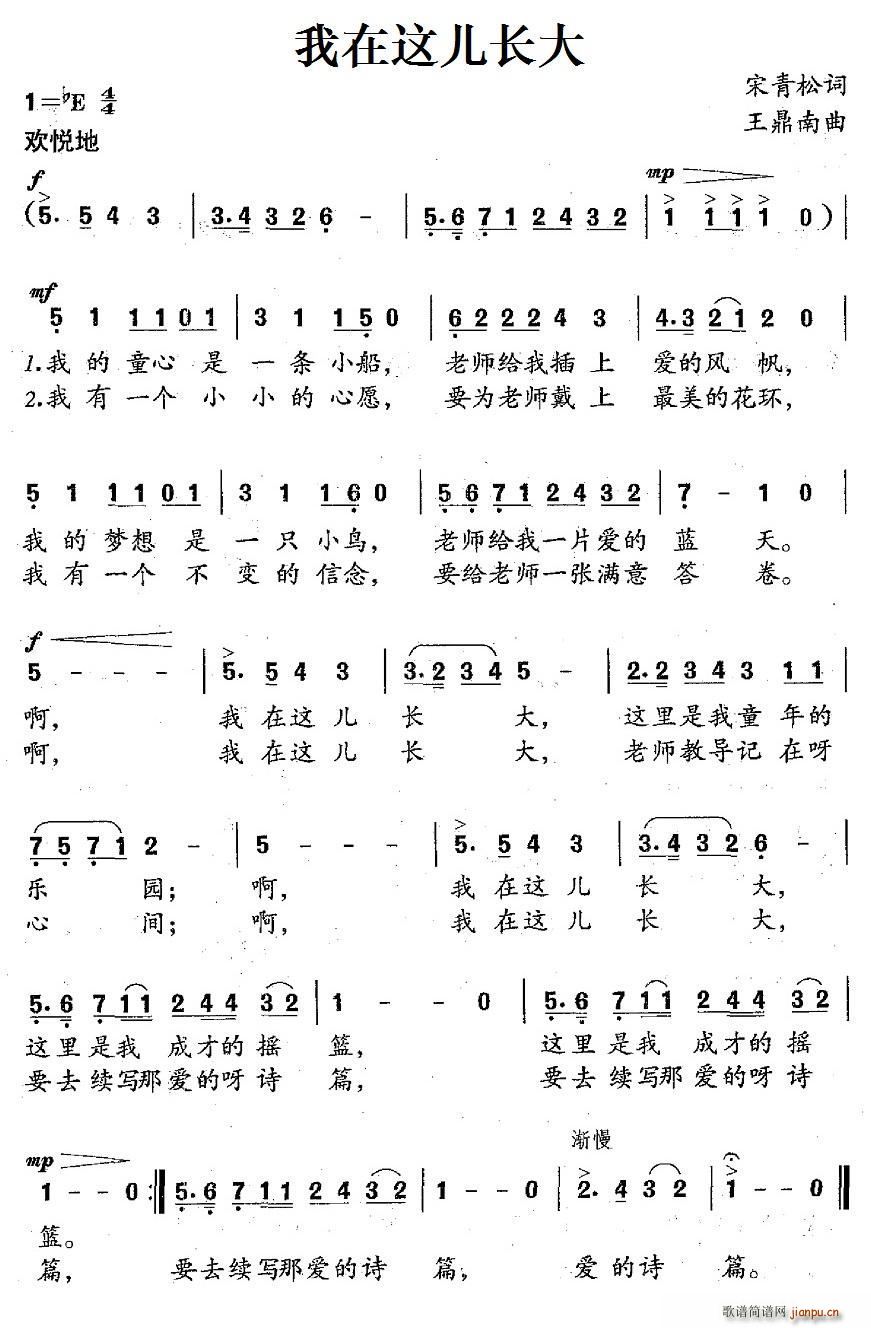 我在这儿长大
宋青松词
1=♭E 4/4
王鼎南曲
欢悦地
f
mp
(5. 5 4 3 | 3.4 3 2 6 - | 5.6 7 1 2 4 3 2 | 1 1 1 1 0 ) |
mf
5 1 1 1 0 1 | 3 1 1 5 0 | 6 2 2 2 4 3 | 4.3 2 1 2 0 |
1.我 的 童心 是 一 条 小船, 老师给我插 上 爱的风 帆,
2.我 有 一个 小 小 的 心愿, 要为老师戴 上 最美的花环,
5 1 1 1 0 1 | 3 1 1 6 0 | 5 6 7 1 2 4 3 2 | 7 - 1 0 |
我 的 梦想 是 一 只 小鸟, 老师给我一片爱的 蓝 天。
我 有 一个 不 变 的 信念, 要给老师一张满意 答 卷。
f
5 - - - | 5. 5 4 3 | 3.2 3 4 5 - | 2.2 3 4 3 1 1 |
啊, 我 在这 儿 长 大, 这里是我童 年的
啊, 我 在这 儿 长 大, 老师教导记 在呀
7 5 7 1 2 - | 5 - - - | 5. 5 4 3 | 3.4 3 2 6 - |
乐 园; 啊, 我 在这 儿 长 大,
心 间; 啊, 我 在这 儿 长 大,
5.6 7 1 1 2 4 4 3 2 | 1 - - 0 | 5.6 7 1 1 2 4 4 3 2 |
这里是我 成才的摇 篮, 这里是我 成才的摇
要去续写那爱的呀诗 篇, 要去续写那爱的呀诗
渐慢
mp
1 - - 0 :‖ 5.6 7 1 1 2 4 3 2 | 1 - - 0 | 2. 4 3 2 | 1 - - 0 ‖
篮。
篇, 要去续写那爱的诗 篇, 爱 的 诗 篇。
歌谱简谱网 jianpu.cn